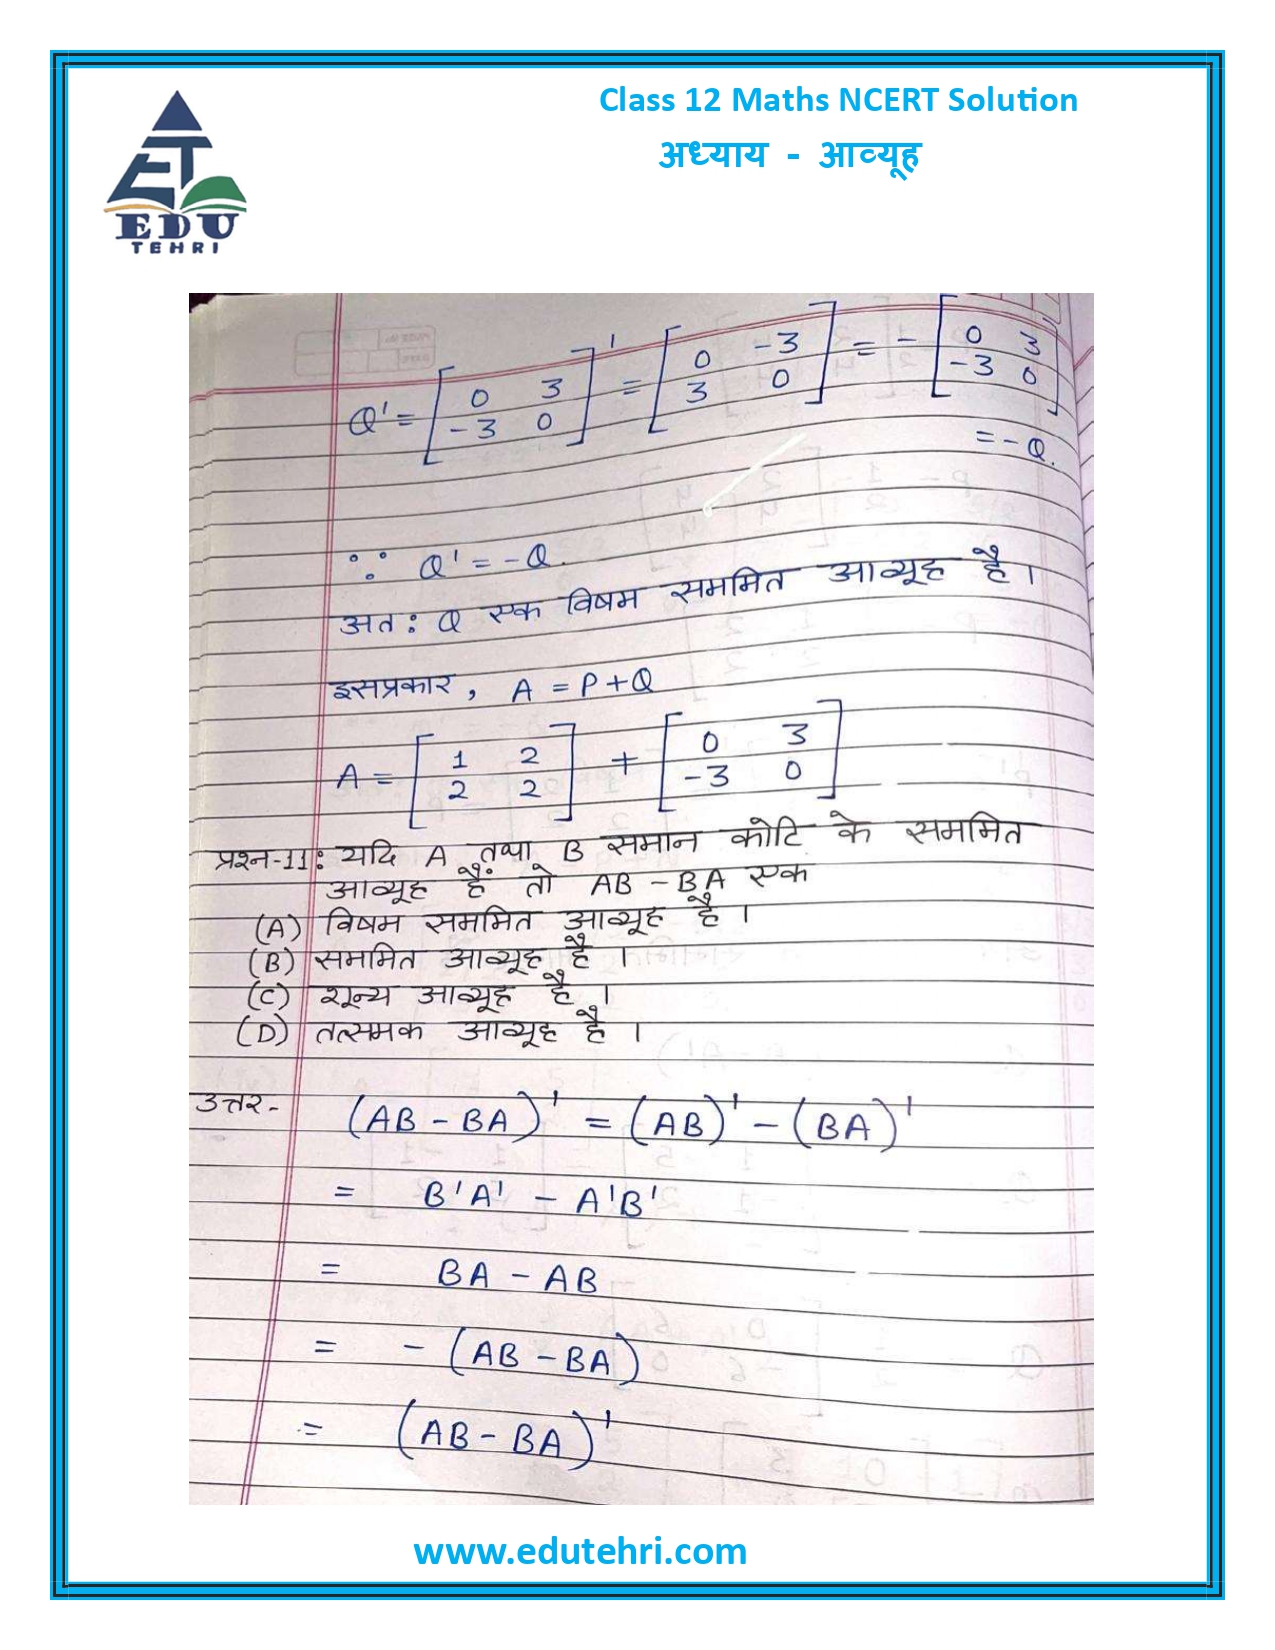 Class 12 Maths NCERT Solution
अध्याय - आव्यूह
EDU
TEHRI
Q' = [0 3 -3 0]' = [0 -3 3 0] = - [0 3 -3 0]
= - Q.
∵ Q' = - Q.
अतः Q एक विषम सममित आव्यूह है।
इसप्रकार, A = P + Q
A = [1 2 2 2] + [0 3 -3 0]
प्रश्न-11: यदि A तथा B समान कोटि के सममित
आव्यूह हैं तो AB - BA एक
(A) विषम सममित आव्यूह है।
(B) सममित आव्यूह है।
(C) शून्य आव्यूह है।
(D) तत्समक आव्यूह है।
उत्तर- (AB - BA)' = (AB)' - (BA)'
= B'A' - A'B'
= BA - AB
= - (AB - BA)
= (AB - BA)'
www.edutehri.com